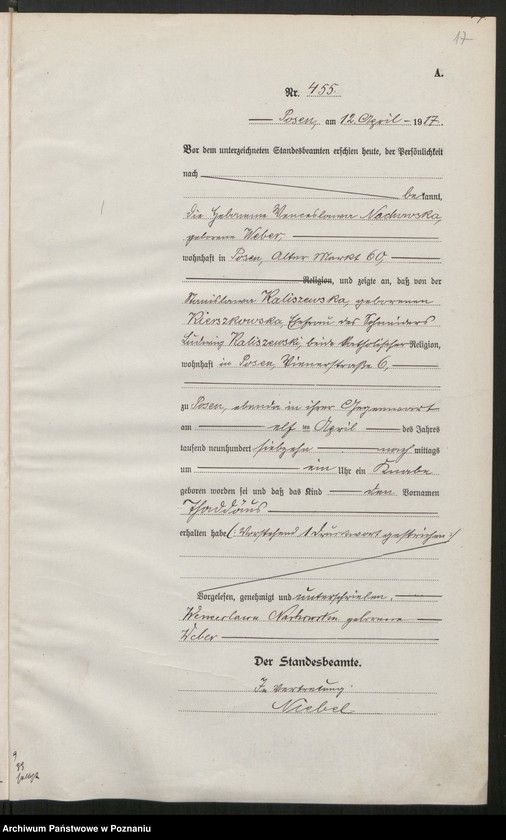 17
A.
Nr. 455.
Posen, am 12. April 1917.
Vor dem unterzeichneten Standesbeamten erschien heute, der Persönlichkeit
nach
bekannt,
die Hebamme Wenceslawa Nachowska,
geborene Weber,
wohnhaft in Posen, Alter Markt 60,
Religion, und zeigte an, daß von der
Stanislawa Kaliszewska, geborenen
Kierszkowska, Ehefrau des Schneiders
Ludwig Kaliszewski, beide katholischer Religion,
wohnhaft in Posen, Wienerstraße 6,
zu Posen, ebenda in ihrer Gegenwart
am elf ten April des Jahres
tausend neunhundert siebzehn nachmittags
um ein Uhr ein Knabe
geboren worden sei und daß das Kind den Vornamen
Thaddäus
erhalten habe (: Vorstehend 1 Druckwort gestrichen :)
Vorgelesen, genehmigt und unterschrieben.
Wenceslawa Nachowska geborene
Weber
Der Standesbeamte.
In Vertretung:
Niebel
Archiwum Państwowe w Poznaniu